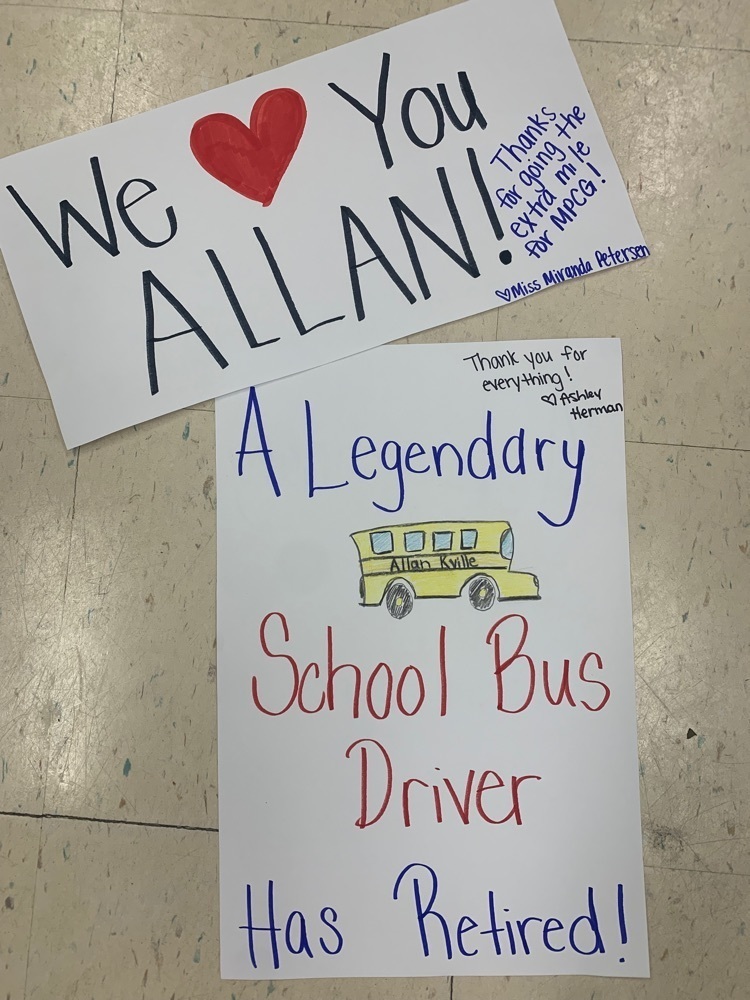 We ❤ You
ALLAN!
Thanks
for going the
extra mile
for MPCG!
♡Miss Miranda Petersen
Thank you for
everything!
♡Ashley
Herman
A Legendary
Allan Kville
School Bus
Driver
Has Retired!